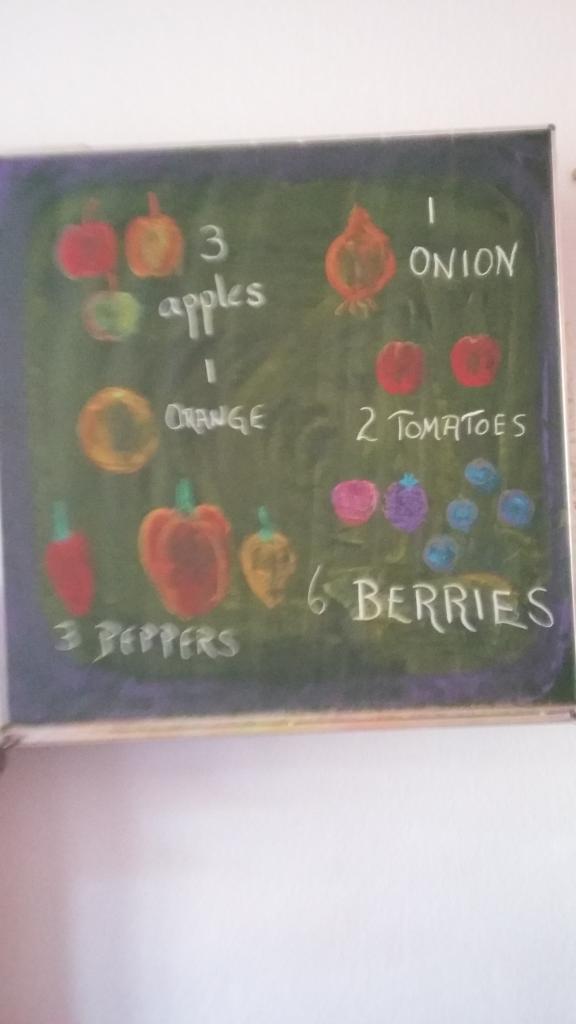 3
apples
1
ORANGE
3 PEPPERS
1
ONION
2 TOMATOES
6 BERRIES